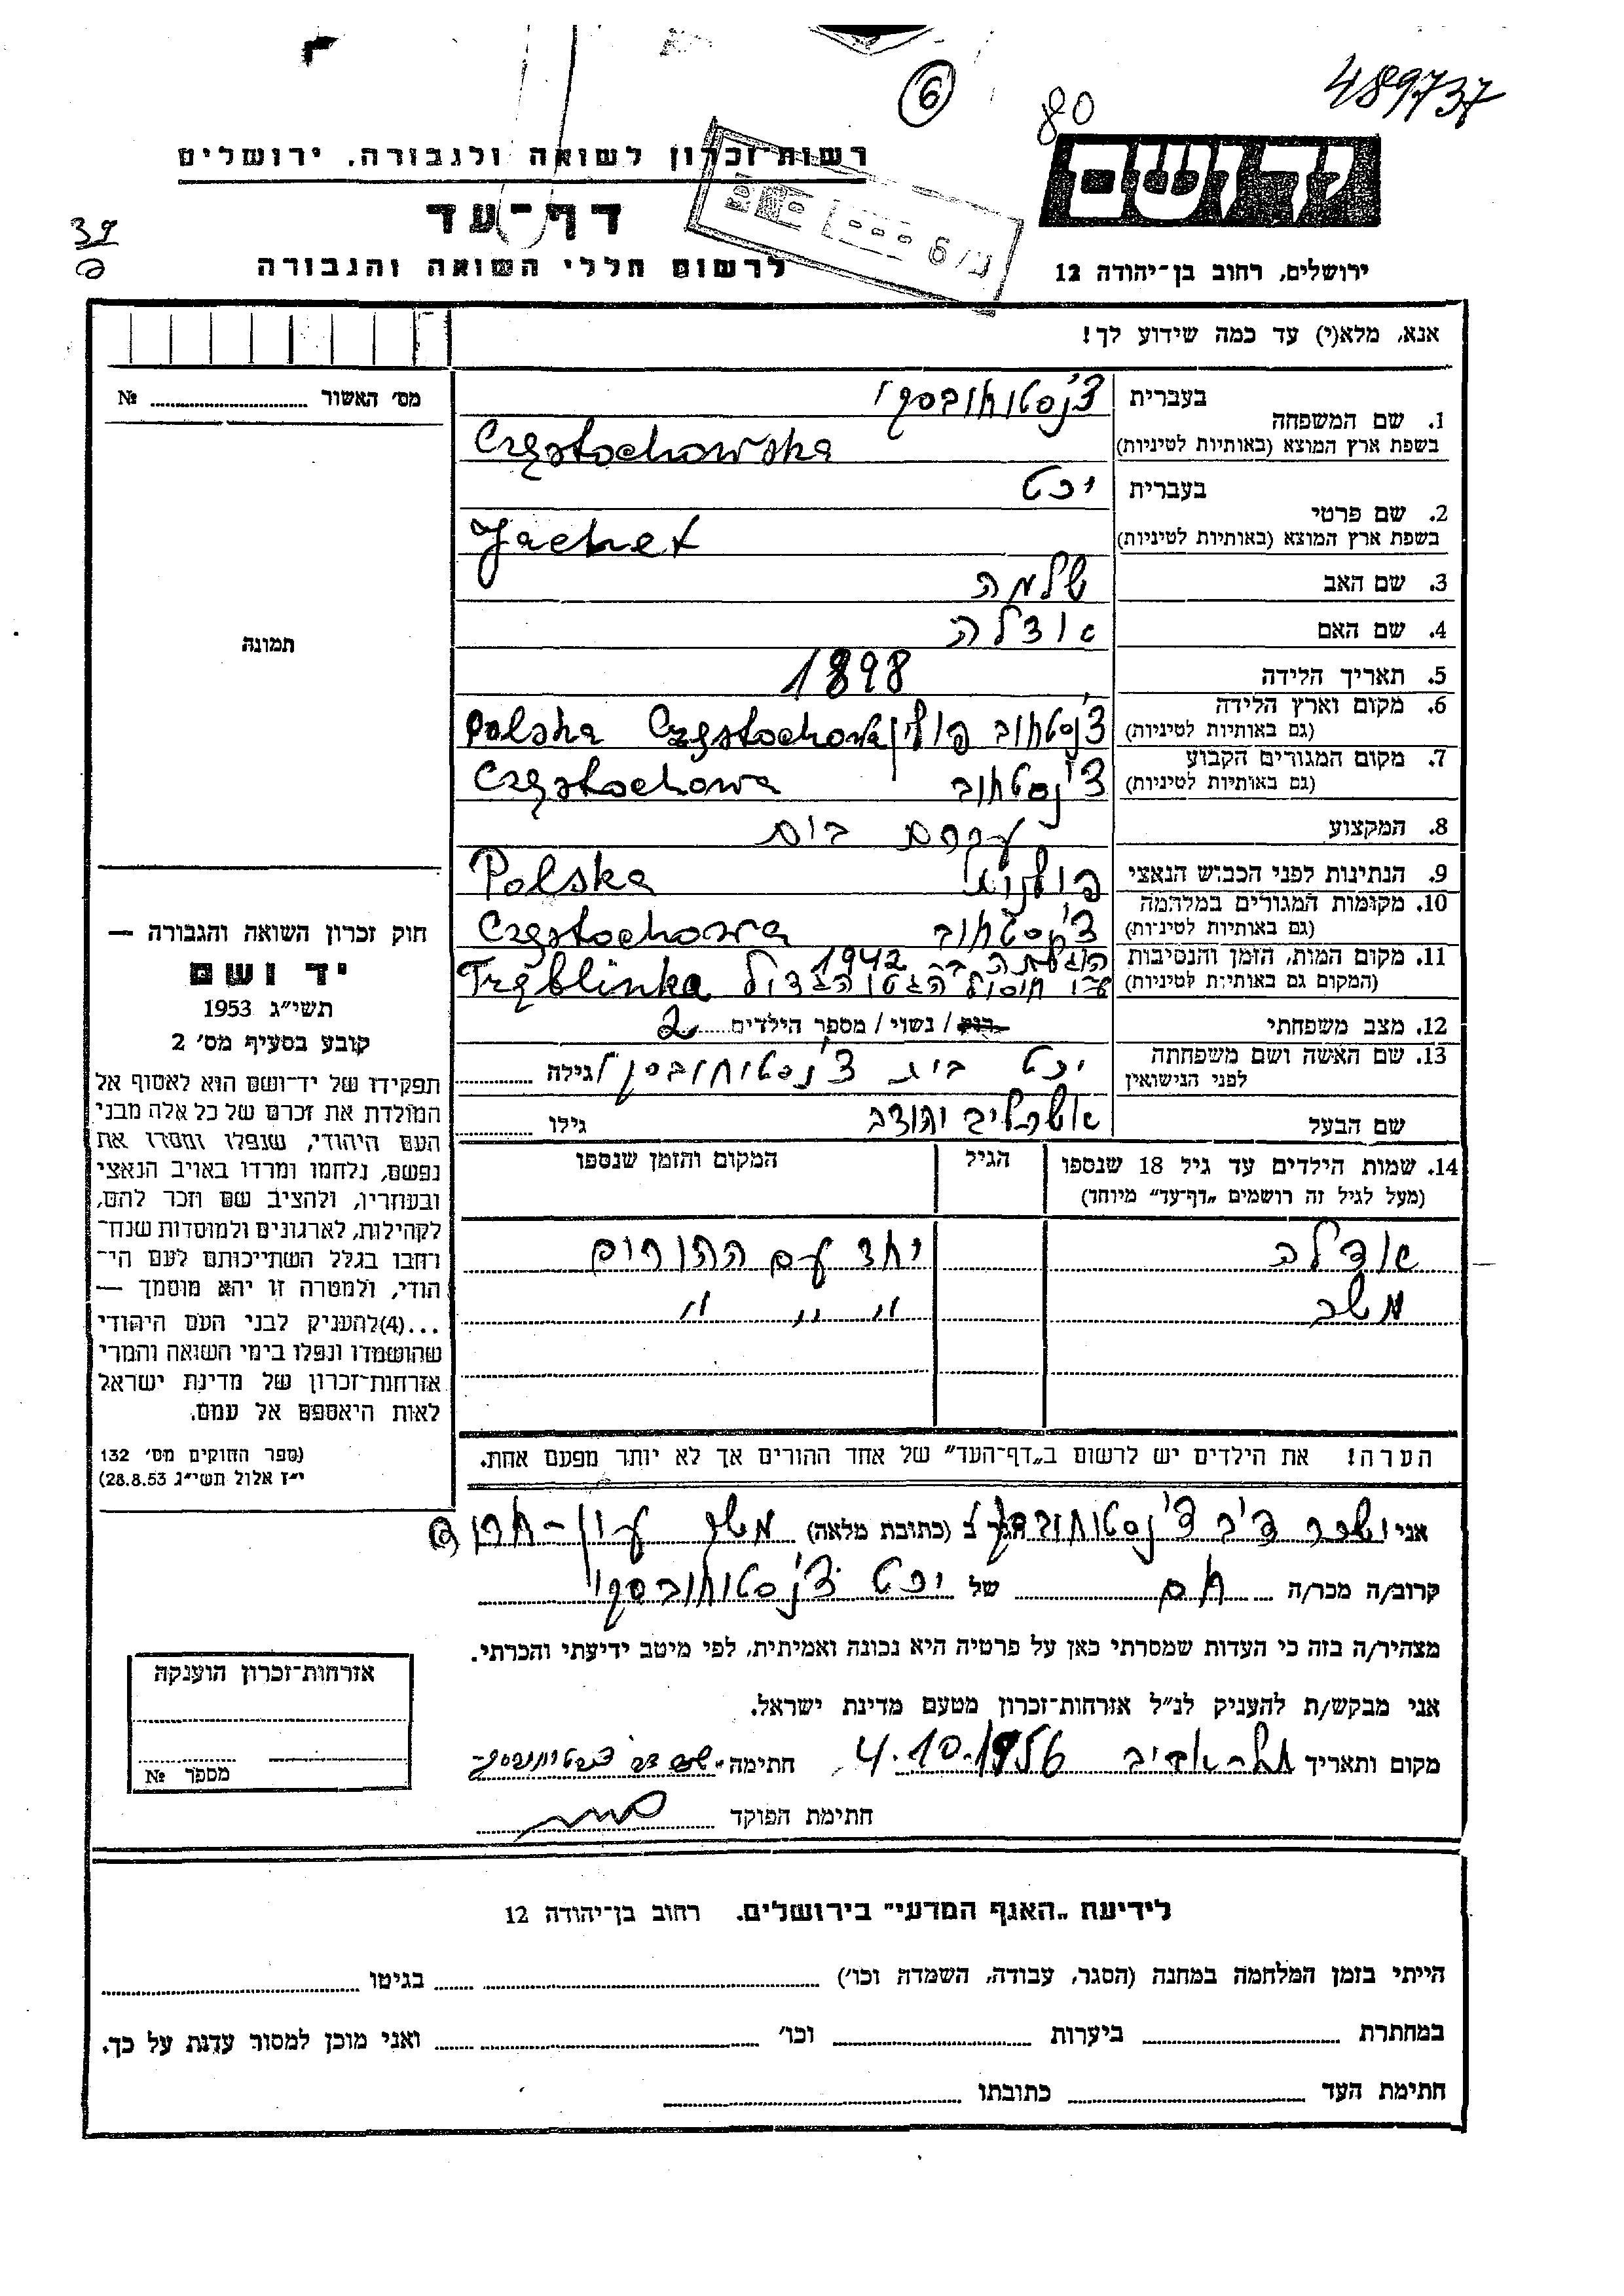 489737
80
6
רשות־זכרון לשואה ולגבורה. ירושלים
יד ושם
דף־עד
39
לרשום חללי השואה והגבורה
ירושלים, רחוב בן־יהודה 12
אנא, מלא(י) עד כמה שידוע לך!
מס׳ האשור № 
1. שם המשפחה בעברית צ'נסטוחובסקי
בשפת ארץ המוצא (באותיות לטיניות) Częstochowska
2. שם פרטי בעברית יכט
בשפת ארץ המוצא (באותיות לטיניות) Jachet
3. שם האב שלמה
4. שם האם אודלה
תמונה
5. תאריך הלידה 1898
6. מקום וארץ הלידה (גם באותיות לטיניות) צ'נסטחוב פולין Częstochowa Polska
7. מקום המגורים הקבוע (גם באותיות לטיניות) צ'נסטחוב Częstochowa
8. המקצוע עקרת בית
9. הנתינות לפני הכבוש הנאצי פולנית Polska
10. מקומות המגורים במלחמה (גם באותיות לטיניות) צ'נסטחוב Częstochowa
11. מקום המות, הזמן והנסיבות (המקום גם באותיות לטיניות) 1942 חיסול הגטו הגדול Tręblinka
12. מצב משפחתי רוק / נשוי / מספר הילדים 2
13. שם האשה ושם משפחתה לפני הנישואין יכט בית צ'נסטוחובסקי גילה
שם הבעל גילו
14. שמות הילדים עד גיל 18 שנספו
(מעל לגיל זה רושמים „דף־עד" מיוחד)
הגיל
המקום והזמן שנספו
אודלה יחד עם ההורים
משה " " "
הערה! את הילדים יש לרשום ב„דף־העד" של אחד ההורים אך לא יותר מפעם אחת.
חוק זכרון השואה והגבורה —
יד ושם
תשי״ג 1953
קובע בסעיף מס׳ 2
תפקידו של יד־ושם הוא לאסוף אל
המולדת את זכרם של כל אלה מבני
העם היהודי, שנפלו ומסרו את
נפשם, נלחמו ומרדו באויב הנאצי
ובעוזריו, ולהציב שם וזכר להם,
לקהילות, לארגונים ולמוסדות שנח־
רחבו בגלל השתייכותם לעם הי־
הודי, ולמטרה זו יהא מוסמך —
...(4)להעניק לבני העם היהודי
שהושמדו ונפלו בימי השואה והמרי
אזרחות־זכרון של מדינת ישראל
לאות היאספם אל עמם.
(ספר החוקים מס׳ 132
י״ז אלול תשי״ג 28.8.53)
אני ישכר דב צ'נסטוחובסקי הגר ב (כתובת מלאה) משק עין-חרוד
קרוב/ה מכר/ה של יכט צ'נסטוחובסקי
מצהיר/ה בזה כי העדות שמסרתי כאן על פרטיה היא נכונה ואמיתית, לפי מיטב ידיעתי והכרתי.
אני מבקש/ת להעניק לנ״ל אזרחות־זכרון מטעם מדינת ישראל.
מקום ותאריך תל-אביב 4.10.1956 חתימה
חתימת הפוקד
אזרחות־זכרון הוענקה
מספר №
לידיעת „האגף המדעי" בירושלים. רחוב בן־יהודה 12
הייתי בזמן המלחמה במחנה (הסגר, עבודה, השמדה וכו׳) בגיטו
במחתרת ביערות וכו׳ ואני מוכן למסור עדות על כך.
חתימת העד כתובתו